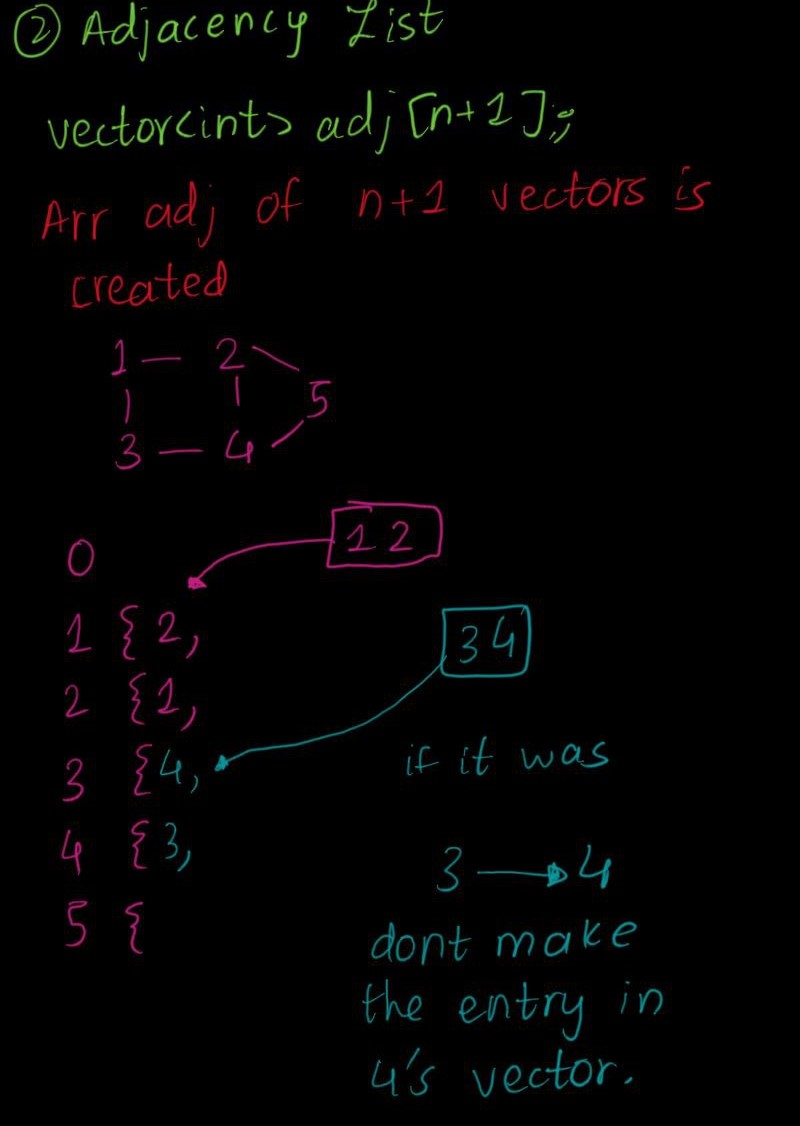 ② Adjacency List
vector<int> adj[n+1];
Arr adj of n+1 vectors is
created
1 — 2
5
3 — 4
0
1 2
1 {2,
3 4
2 {1,
3 {4,
if it was
4 {3,
3 → 4
5 {
dont make
the entry in
4's vector.